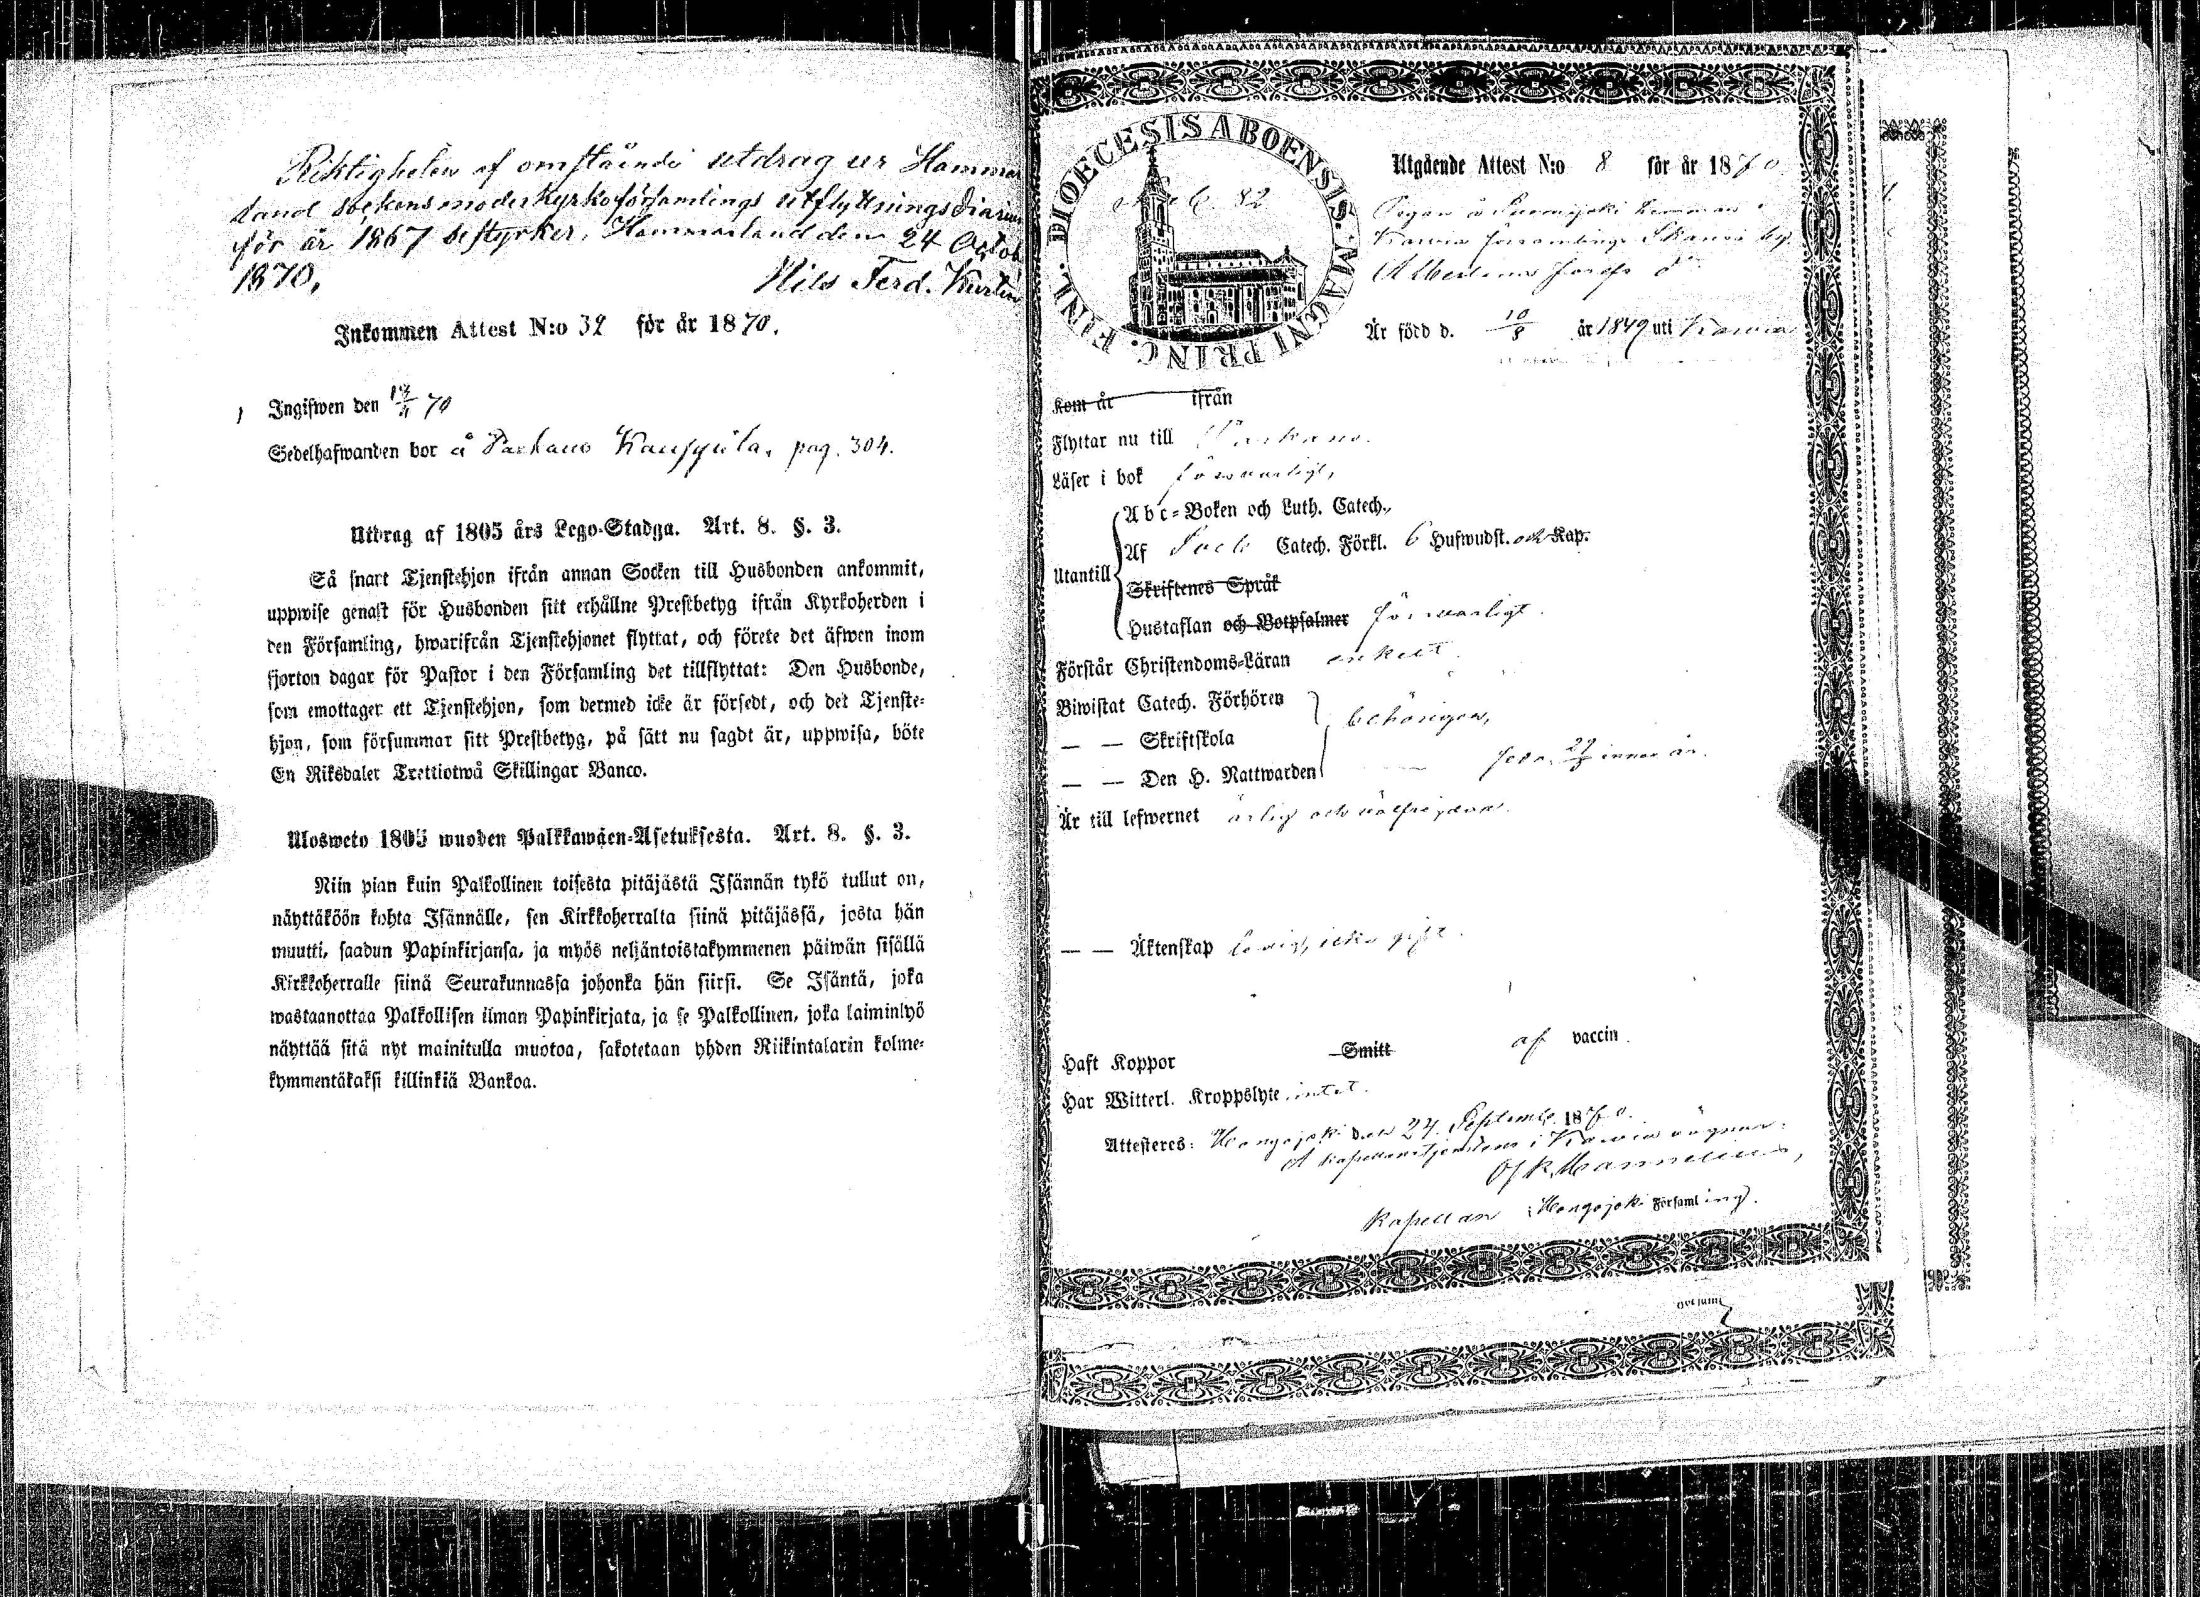 Riktigheten af omstående utdrag ur Hammar
land sockens moderkyrkoförsamlings utflyttningsdiarium
för år 1867 bestyrker, Hammarland den 24 Octob
1870,
Nils Ferd.
Inkommen Attest N:o 32 för år 1870.
Ingifwen den 70
Sedelhafwanden bor å Parkano pag. 304.
Utdrag af 1805 års Lego-Stadga. Art. 8. §. 3.
Så snart Tjenstehjon ifrån annan Socken till Husbonden ankommit,
uppwise genast för Husbonden sitt erhållne Prestbetyg ifrån Kyrkoherden i
den Församling, hwarifrån Tjenstehjonet flyttat, och förete det äfwen inom
fjorton dagar för Pastor i den Församling det tillflyttat: Den Husbonde,
som emottager ett Tjenstehjon, som dermed icke är försedt, och det Tjenste-
hjon, som försummar sitt Prestbetyg, på sätt nu sagdt är, uppwisa, böte
En Riksdaler Trettiotwå Skillingar Banco.
Ulosweto 1805 wuoden Palkkawäen-Asetuksesta. Art. 8. §. 3.
Niin pian kuin Palkollinen toisesta pitäjästä Isännän tykö tullut on,
näyttäköön kohta Isännälle, sen Kirkkoherralta siinä pitäjässä, josta hän
muutti, saadun Papinkirjansa, ja myös neljäntoistakymmenen päiwän sisällä
Kirkkoherralle siinä Seurakunnassa johonka hän siirsi. Se Isäntä, joka
wastaanottaa Palkollisen ilman Papinkirjata, ja se Palkollinen, joka laiminlyö
näyttää sitä nyt mainitulla muotoa, sakotetaan yhden Riikintalarin kolme-
kymmentäkaksi killinkiä Bankoa.
DIOECESIS ABOENSIS. MAGNI PRINC. FINL.
Utgående Attest N:o 8 för år 1870
Pigan å hemman i
församlings by.
Josefs dr
Är född d. 10/8 år 1849 uti
Kom år ifrån
Flyttar nu till Parkano.
Läser i bok förswarligt,
Utantill
Abc-Boken och Luth. Catech.
Af Catech. Förkl. 6 Hufwudst. och Kap.
Skriftenes Språk
Hustaflan och Botpsalmer förswarligt.
Förstår Christendoms-Läran enkelt.
Biwistat Catech. Förhören
— — Skriftskola
behörigen,
— — Den H. Nattwarden innew. år.
Är till lefwernet ärlig och wälfrejdad.
— — Äktenskap ledig, icke gift.
Haft Koppor Smitt af vaccin.
Har Witterl. Kroppslyte intet.
Attesteres: Hongojoki den 27. Septemb. 1870.
Kapellan i Hongojoki Församling.